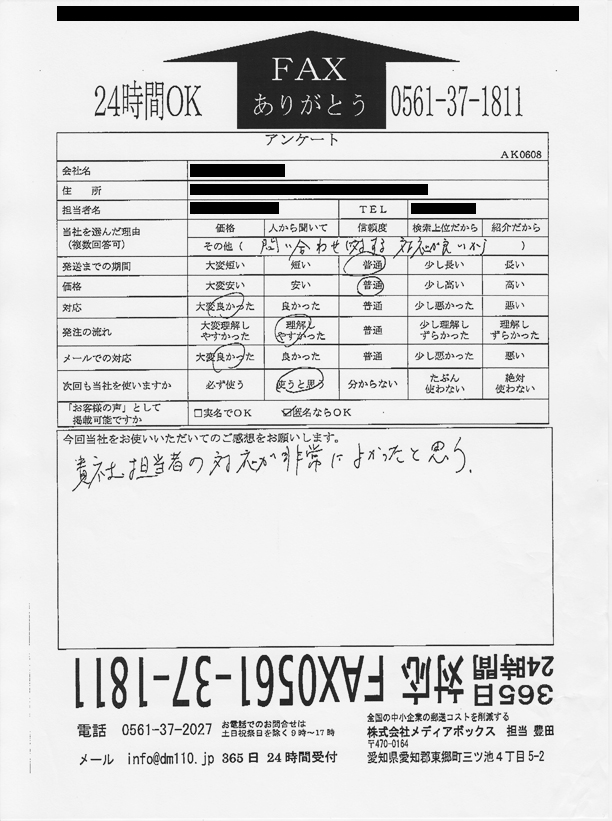 FAX
ありがとう
24時間OK
0561-37-1811
アンケート
AK0608
会社名
住 所
担当者名 TEL
当社を選んだ理由
(複数回答可)
価格 人から聞いて 信頼度 検索上位だから 紹介だから
その他( 問い合わせに対する対応が良いから )
発送までの期間 大変短い 短い 普通 少し長い 長い
価格 大変安い 安い 普通 少し高い 高い
対応 大変良かった 良かった 普通 少し悪かった 悪い
発注の流れ 大変理解しやすかった 理解しやすかった 普通 少し理解しずらかった 理解しずらかった
メールでの対応 大変良かった 良かった 普通 少し悪かった 悪い
次回も当社を使いますか 必ず使う 使うと思う 分からない たぶん使わない 絶対使わない
「お客様の声」として
掲載可能ですか
□実名でOK ☑匿名ならOK
今回当社をお使いいただいてのご感想をお願いします。
貴社担当者の対応が非常によかったと思う。
365日 24時間 対応 FAX0561-37-1811
電話 0561-37-2027 お電話でのお問合せは
土日祝祭日を除く9時~17時
メール info@dm110.jp 365日 24時間受付
全国の中小企業の郵送コストを削減する
株式会社メディアボックス 担当 豊田
〒470-0164
愛知県愛知郡東郷町三ツ池4丁目5-2